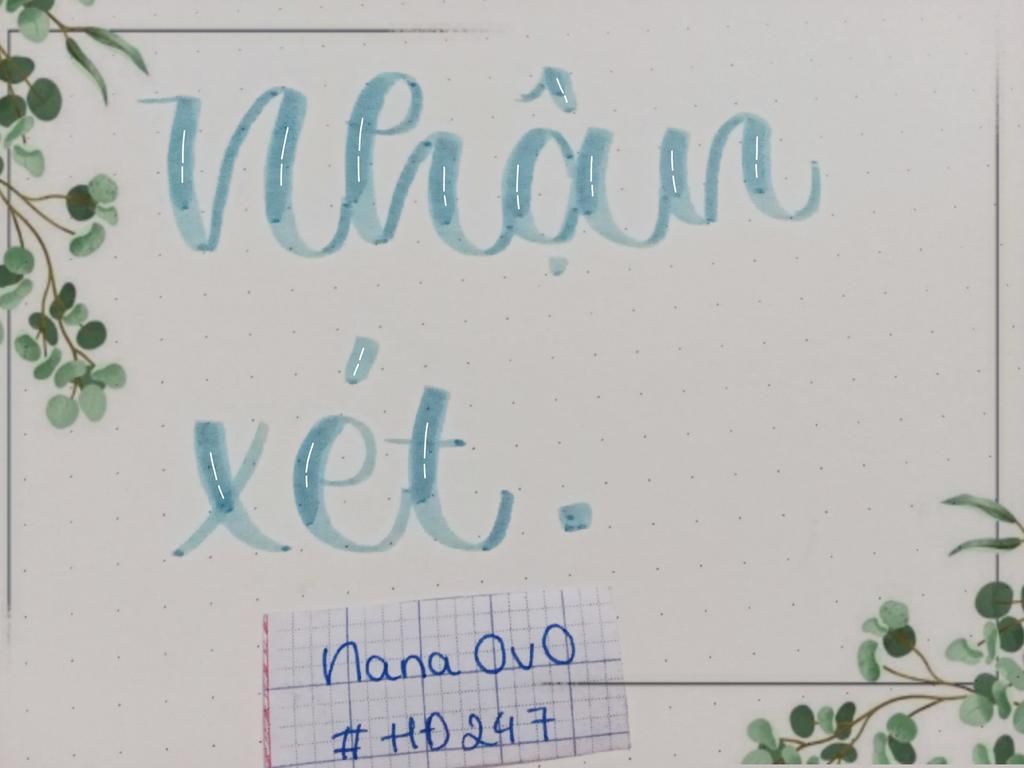 Nhận
xét.
Nana OvO
# HĐ 247